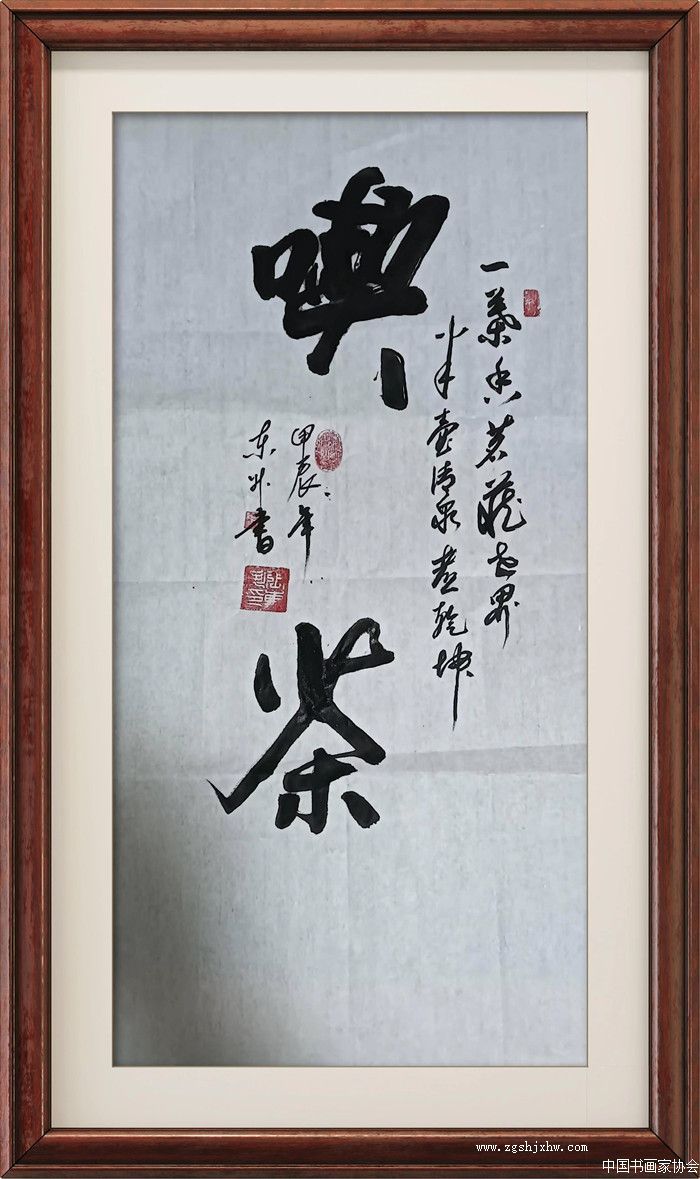 喫茶
一葉香茗藏世界
半壶清泉煮乾坤
甲辰年
东书
www.zgshjxhw.com
中国书画家协会